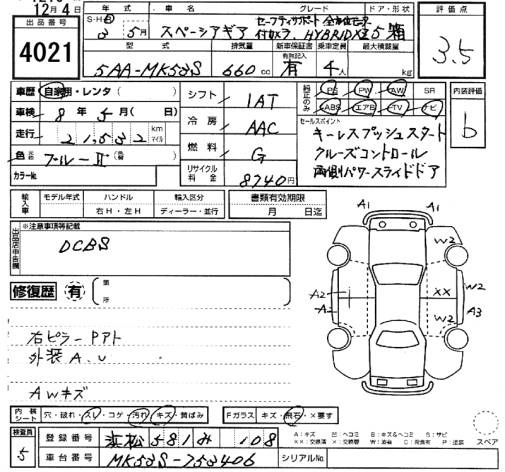 12月4日
出品番号
4021
年式 車名 グレード ドア・形状 評価点
S・H・R
3年 5月 スペーシアギア セーフティサポート 全方位モニター
付カメラ、HYBRID XZ 5 箱
3.5
型式 排気量 新車保証書 乗車定員 最大積載量
有無記入
5AA-MK53S 660cc 有 4人 kg
車歴 自家用・レンタ( )
車検 8年 5月( 日)
走行 21,532 km マイル
色 元色 ブルーⅡ (替)
カラーNo.
シフト 1AT
冷房 AAC
燃料 G
リサイクル料金 8740円
純正のみ PS PW AW SR
ABS エアB TV ナビ
セールスポイント
キーレスプッシュスタート
クルーズコントロール
両側パワースライドドア
内装評価
b
輸入車 モデル年式 ハンドル 輸入区分 書類有効期限
年 右H・左H ディーラー・並行 月 日迄
出品店申告欄
※注意事項等記載
DCBS
修復歴 有 箇所
右ピラー Pアト
外装 A、U
AWキズ
A1 A1
W2
A2 XX W2
A2 W2 A3
内装シート 穴・破れ・スレ・コゲ・汚れ・キズ・黄ばみ Fガラス キズ・飛石・×要す
検査員
5
登録番号 浜松581み 108
車台番号 MK53S-753406
シリアルNo.
スペア